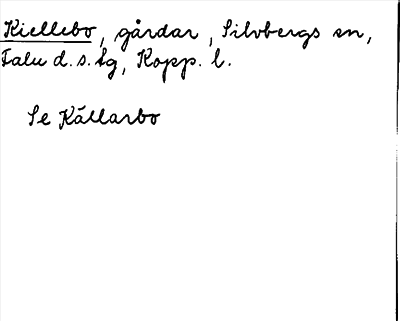 Kiellebo, gårdar, Silvbergs sn,
Falu d.s. tg, Kopp. l.
Se Källarbo